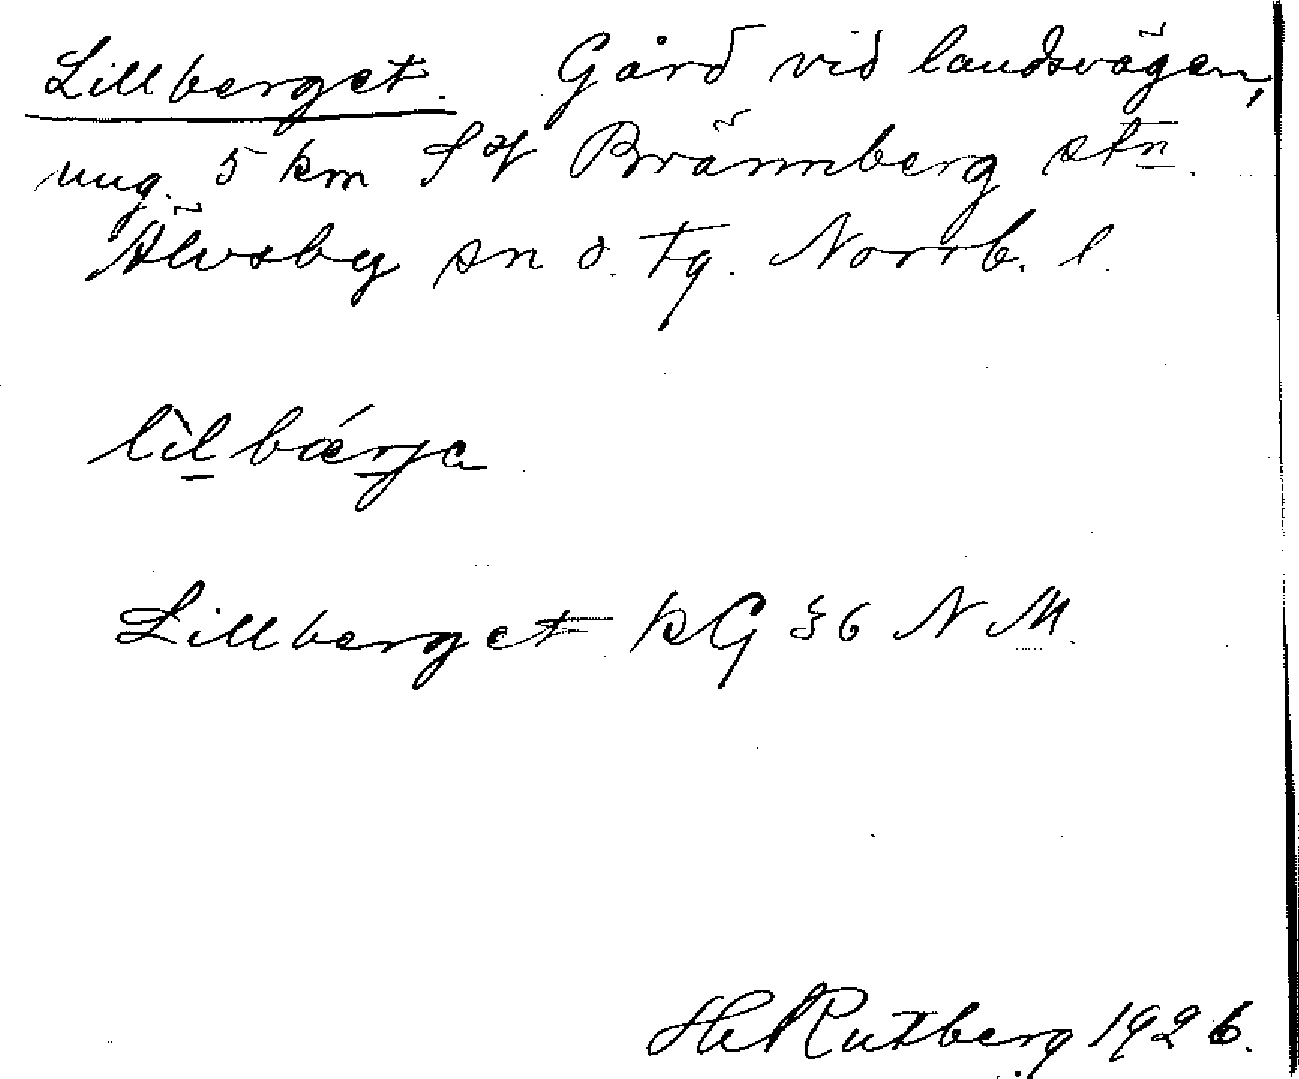 Lillberget. Gård vid landsvägen,
ung. 5 km S of Brännberg stn.
Älvsby sn o. tg. Norrb. l.
lìlbærja
Lillberget kG 36 N M.
Hel Rutberg 1926.